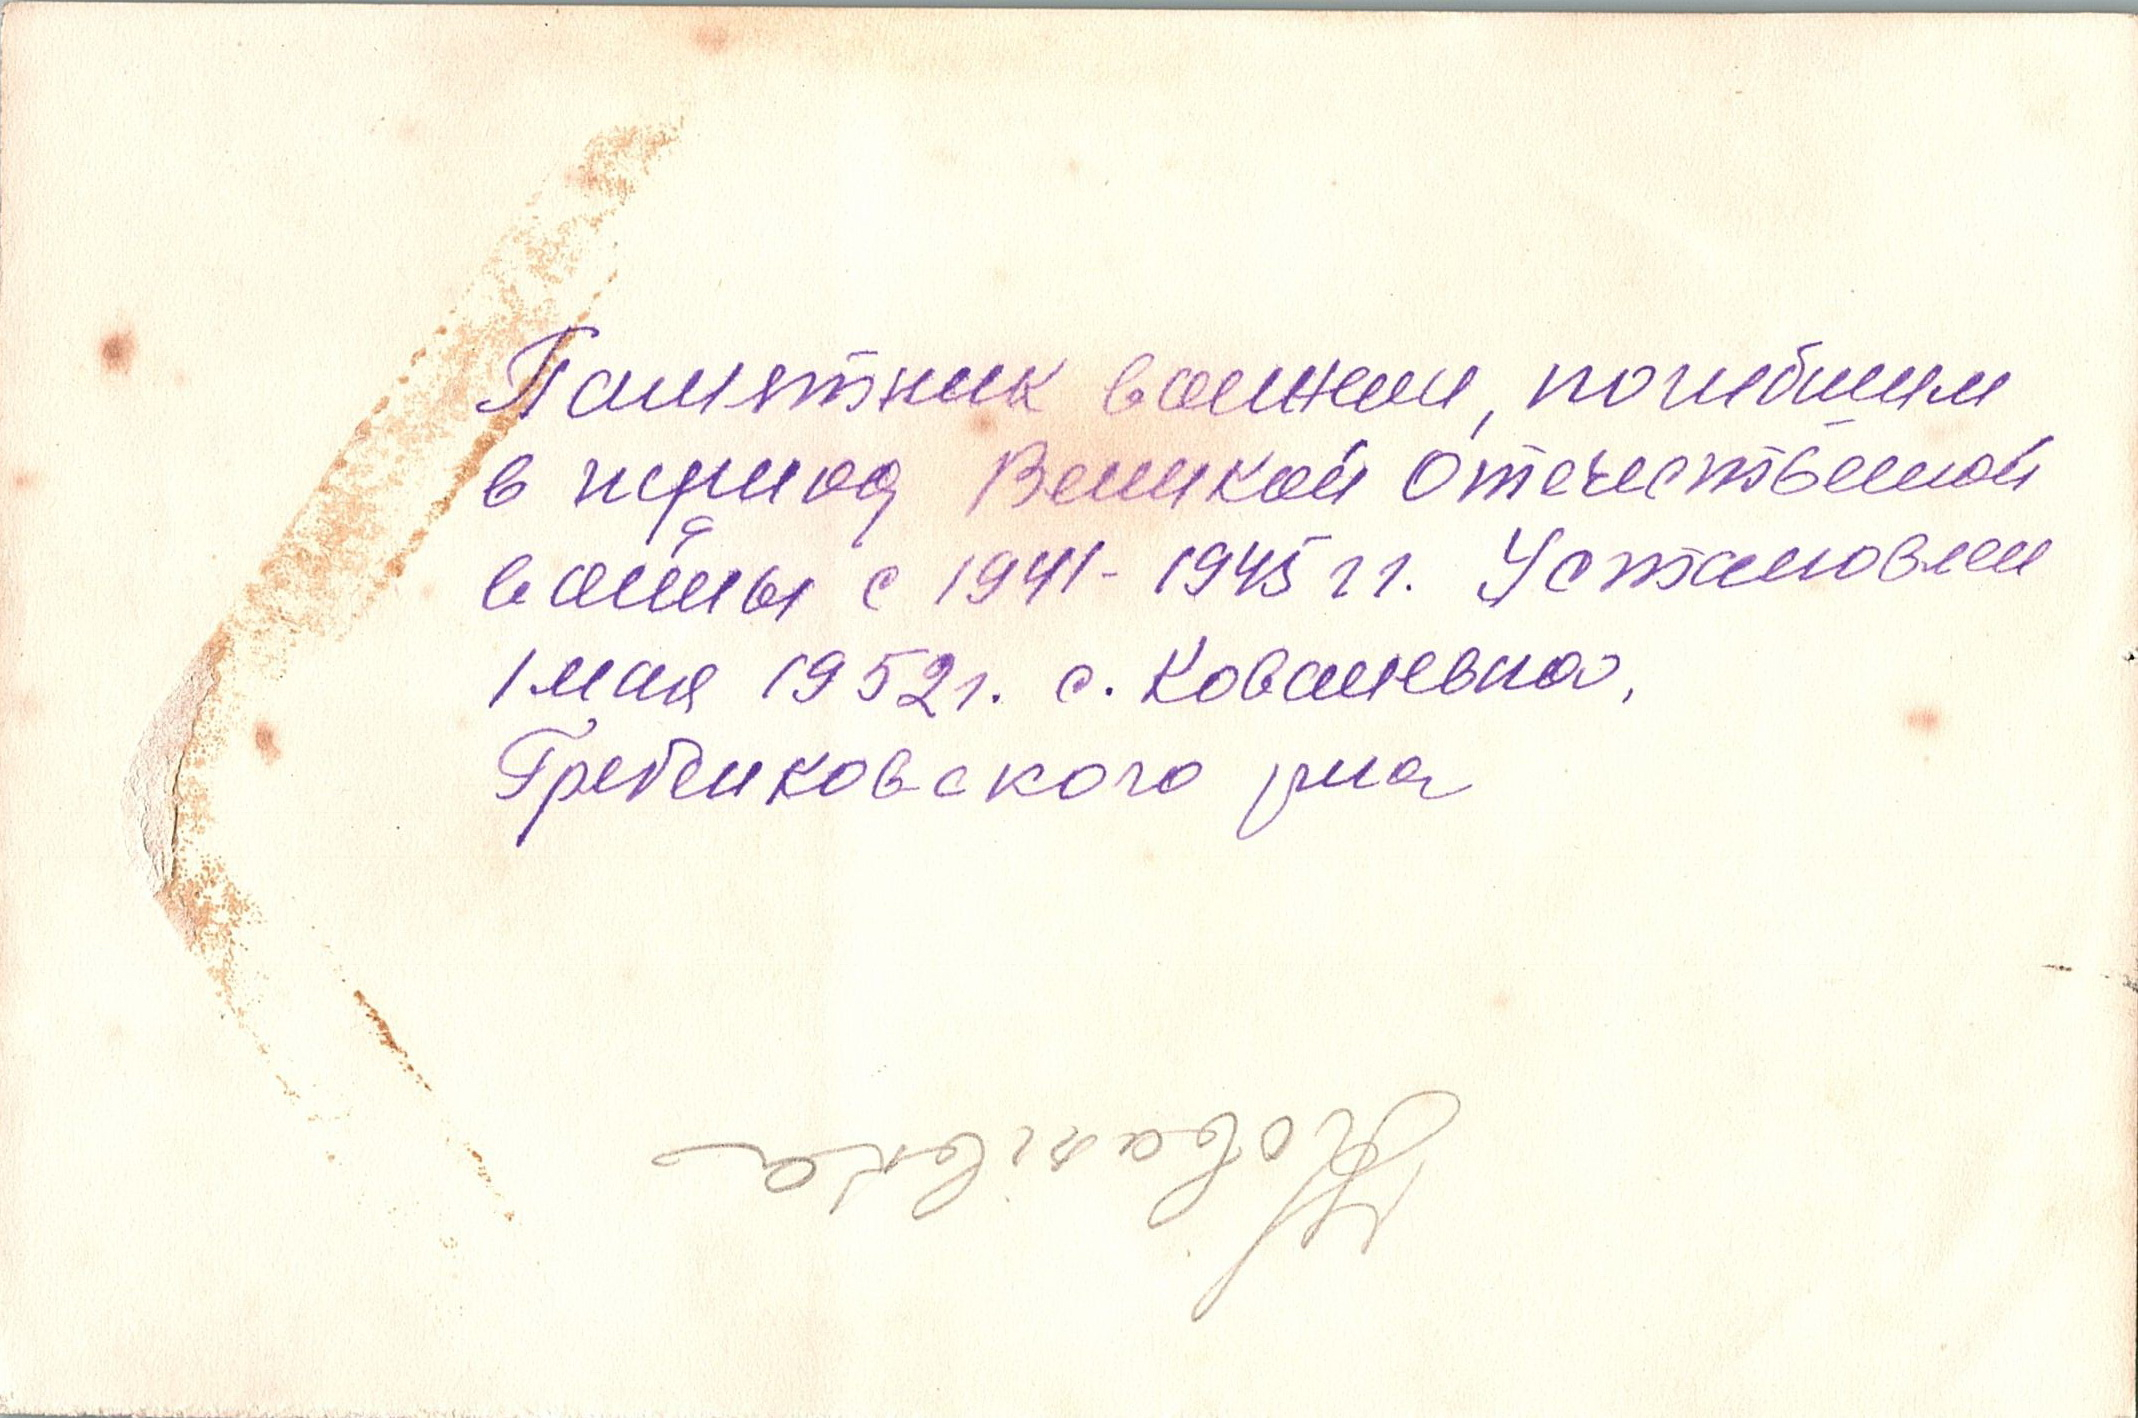 Памятник воинам, погибшим
в период Великой Отечественной
войны с 1941-1945 гг. Установлен
1 мая 1952г. с. Ковалевка,
Гребенковского р-на
Ковалівка